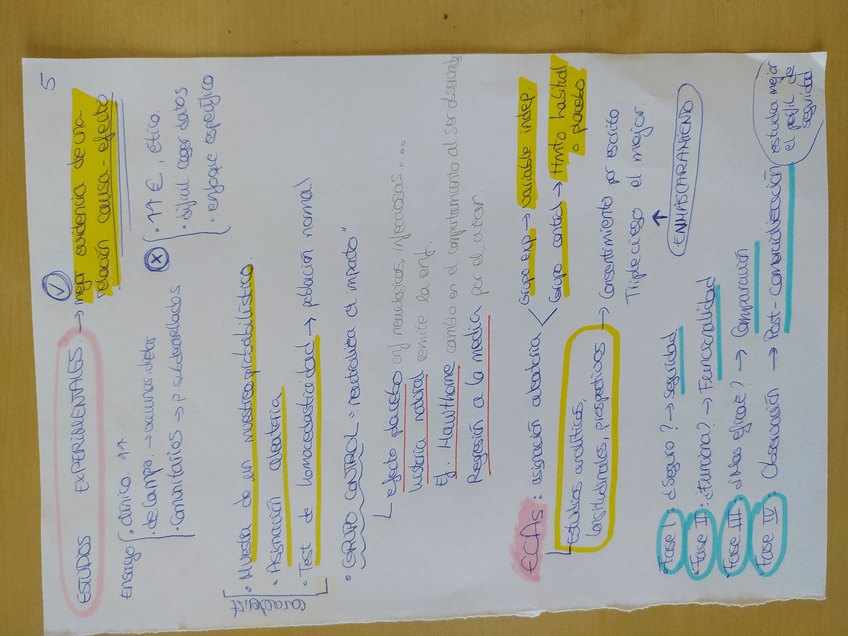 5
ESTUDIOS EXPERIMENTALES. → mejor evidencia de una
relación causa-efecto
Ensayo · clínico. ↑↑
· de campo. → vacunas dieta
· comunitarios → p subdesarrollados
· ↑↑ €, ética.
· difícil coger datos
· enfoque específico
caracterist
· Muestra de un muestreo probabilístico.
· Asignación aleatoria
· Test de homocedasticidad → población normal
· GRUPO CONTROL "neutraliza el impacto"
efecto placebo enf neurológicas, infecciosas...
historia natural remite la enf.
Ef. Hawthorne cambio en el comportamiento al ser observado
Regresión a la media por el azar.
ECAs: asignación aleatoria
Grupo exp → variable indep.
Grupo control → ttmto habitual
o placebo
Estudios analíticos,
longitudinales, prospectivos
→ Consentimiento por escrito
Triple ciego el mejor.
↑
ENMASCARAMIENTO
· Fase I: ¿Seguro? → seguridad
· Fase II: ¿Funciona? → Funcionalidad
· Fase III: ¿Más eficaz? → Comparación
· Fase IV Observación → Post-comercialización
estudia mejor
el perfil de
seguridad